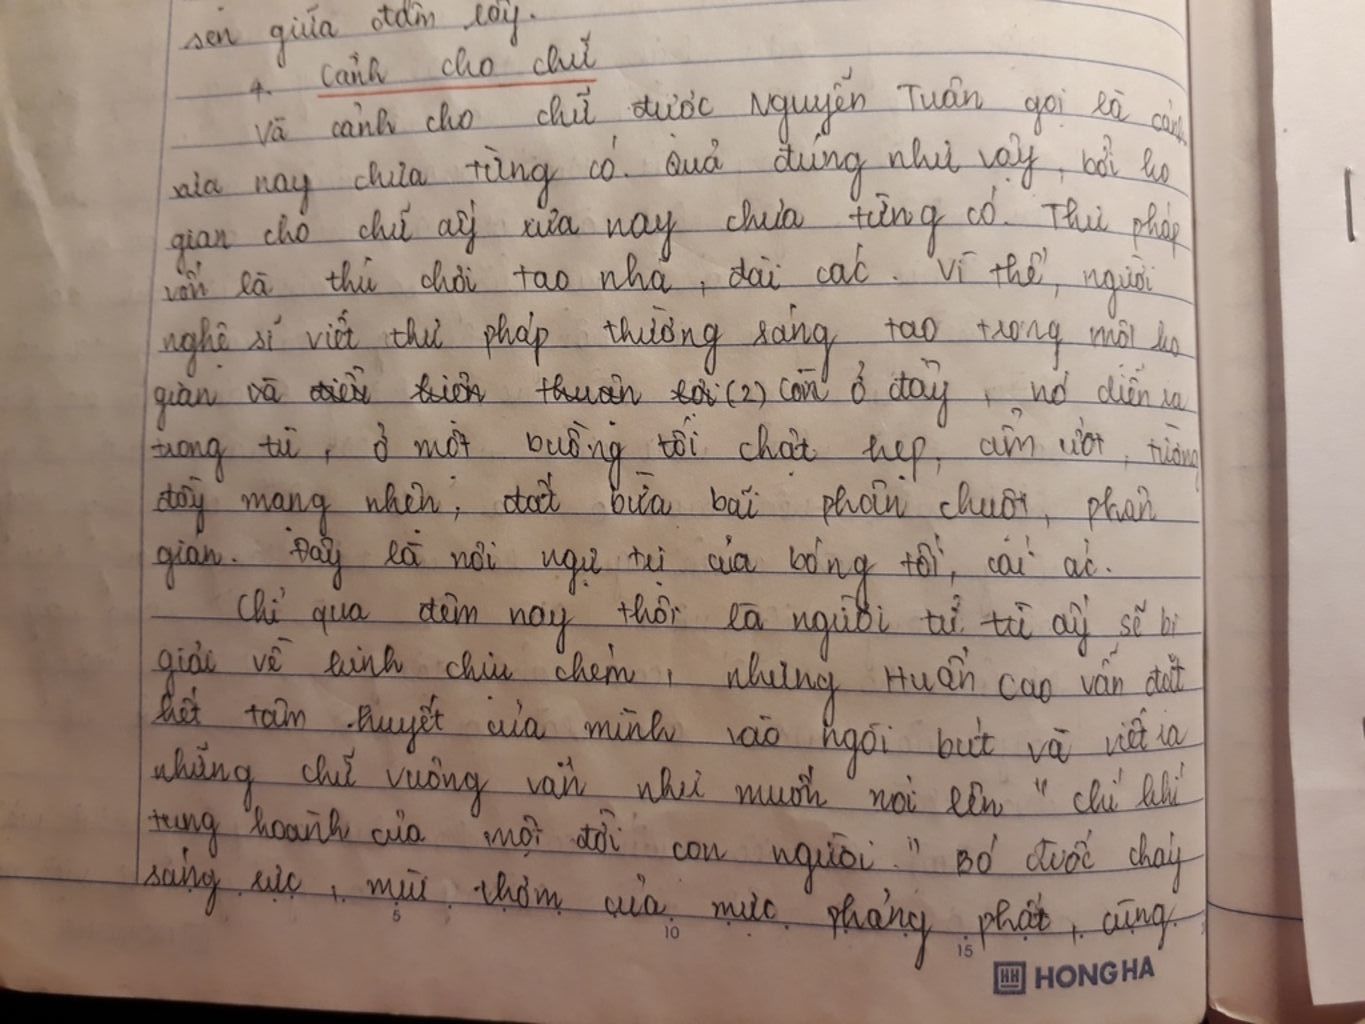 sen giữa đầm lầy.
4. Cảnh cho chữ
Và cảnh cho chữ được Nguyễn Tuân gọi là cảnh
xưa nay chưa từng có. Quả đúng như vậy, bởi ko
gian cho chữ ấy xưa nay chưa từng có. Thư pháp
vốn là thú chơi tao nhã, đài các. Vì thế, người
nghệ sĩ viết thư pháp thường sáng tạo trong một ko
gian và điều kiện thuận lợi (2) Còn ở đây, nó diễn ra
trong tù, ở một buồng tối chật hẹp, ẩm ướt, tường
đầy mạng nhện, đất bừa bãi phân chuột, phân
gián. Đây là nơi ngự trị của bóng tối, cái ác.
Chỉ qua đêm nay thôi là người tử tù ấy sẽ bị
giải về kinh chịu chém, nhưng Huấn Cao vẫn đặt
hết tâm huyết của mình vào ngòi bút và viết ra
những chữ vuông vắn như muốn nói lên " chí khí
tung hoành của một đời con người." Bó đuốc cháy
sáng rực, mùi thơm của mực phảng phất, cũng
5 10 15
HONG HA